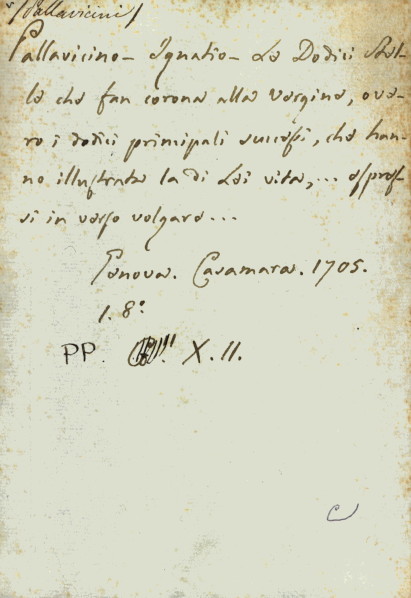 (Pallavicini)
Pallavicino - Ignatio - Le Dodici Stel-
le che fan corona alla Vergine, ove-
ro i dodici principali successi, che han-
no illustrata la di Lei vita, ... espres-
si in verso volgare...
Genova. Casamara. 1705.
1. 8.°
PP. X. 11.